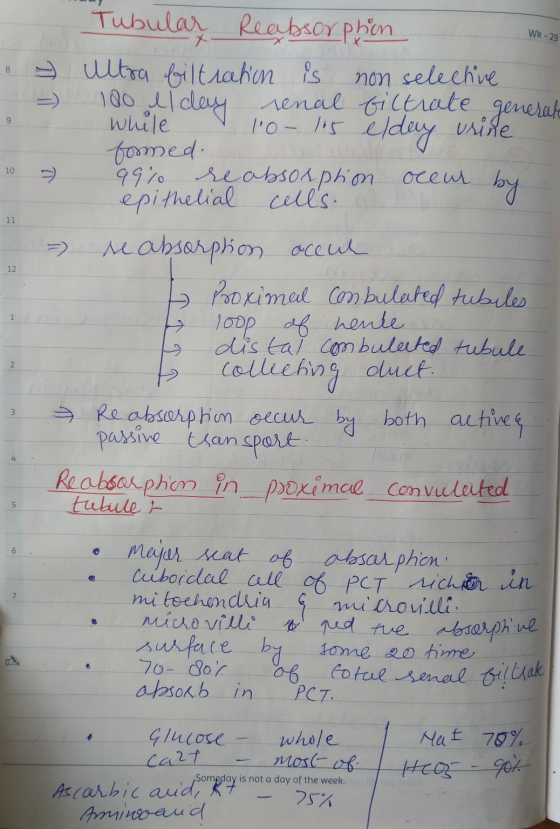 Tubular Reabsorption
WR-29
⇒ Ultra filtration is non selective
⇒ 180 l/day renal filtrate generat
while 1.0 - 1.5 l/day urine
formed.
⇒ 99% reabsorption occur by
epithelial cells.
⇒ reabsorption occur
→ Proximal conbulated tubules
→ loop of henle
→ distal conbulated tubule
→ collecting duct.
⇒ Reabsorption occur by both active &
passive transport.
Reabsorption in proximal convulated
tubule :-
• Major seat of absorption.
• Cuboidal cell of PCT rich in
mitochondria & microvilli.
• Microvilli the absorptive
surface by some 20 time
• 70-80% of total renal filtrate
absorb in PCT.
• Glucose - whole
Ca2+ - most of
Someday is not a day of the week.
Ascarbic acid, K+ - 75%
Aminoacid
Na+ 70%
HCO3- - 90%
8
9
10
11
12
1
2
3
4
5
6
7